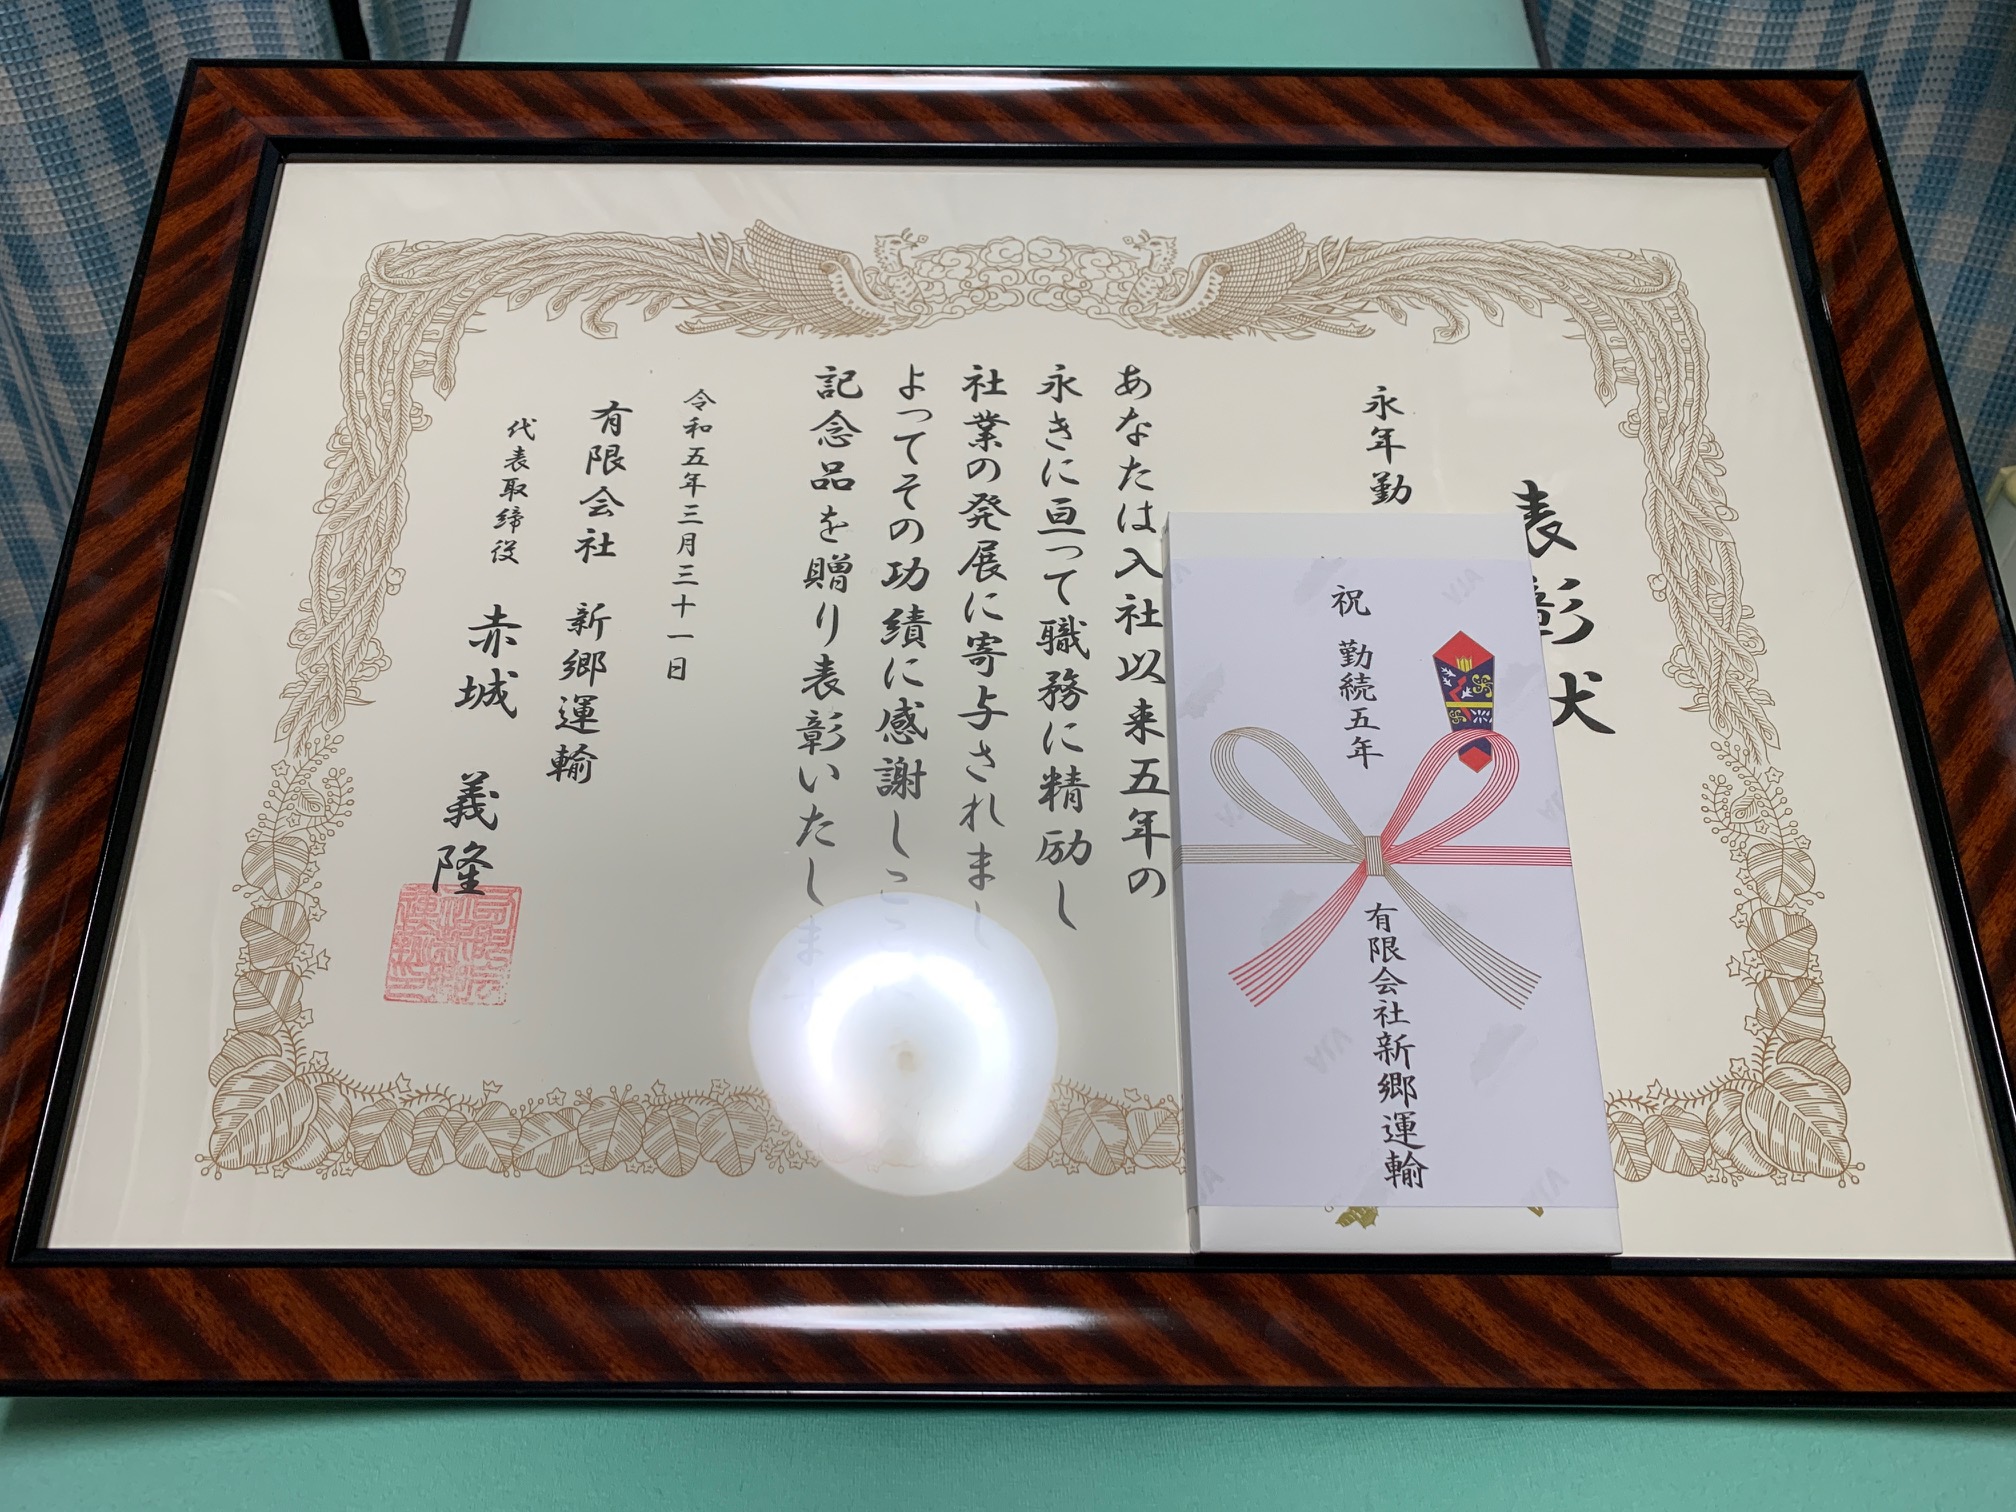 表彰状
永年勤
あなたは入社以来五年の
永きに亘って職務に精励し
社業の発展に寄与されまし
よってその功績に感謝し
記念品を贈り表彰いたしま
令和五年三月三十一日
有限会社 新郷運輸
代表取締役 赤城 義隆
祝 勤続五年
有限会社新郷運輸